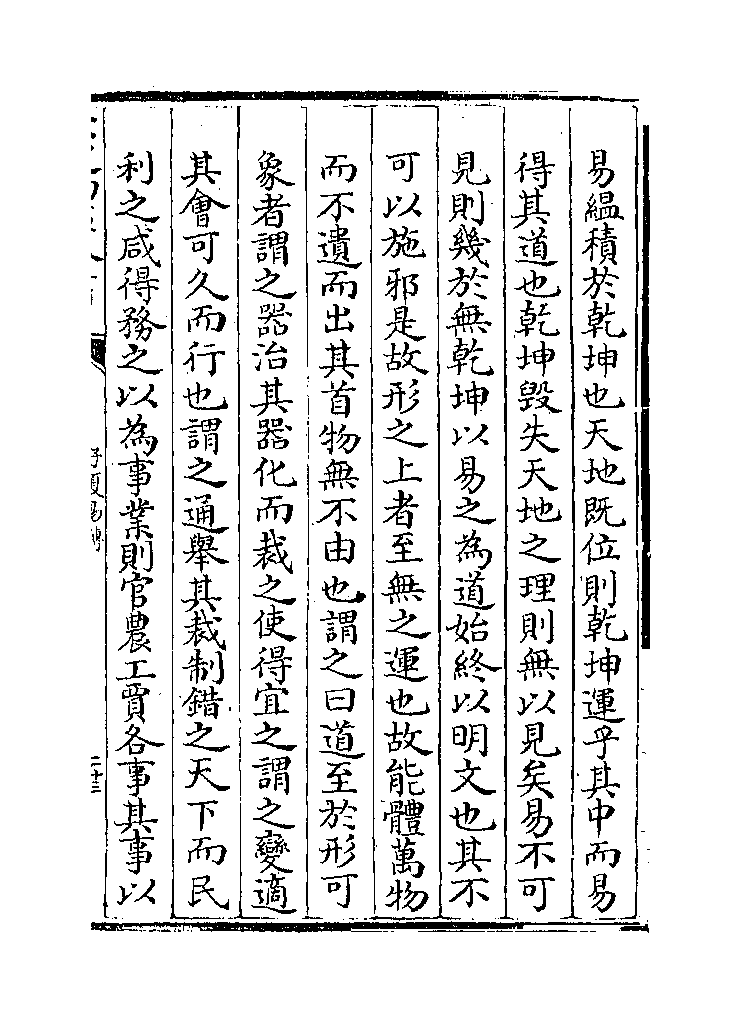 易緼積於乾坤也天地既位則乾坤運乎其中而易
得其道也乾坤毀失天地之理則無以見矣易不可
見則幾於無乾坤以易之為道始終以明文也其不
可以施邪是故形之上者至無之運也故能體萬物
而不遺而出其首物無不由也謂之曰道至於形可
象者謂之器治其器化而裁之使得宜之謂之變適
其會可久而行也謂之通舉其裁制錯之天下而民
利之咸得務之以為事業則官農工賈各事其事以
子夏易傳
二十三